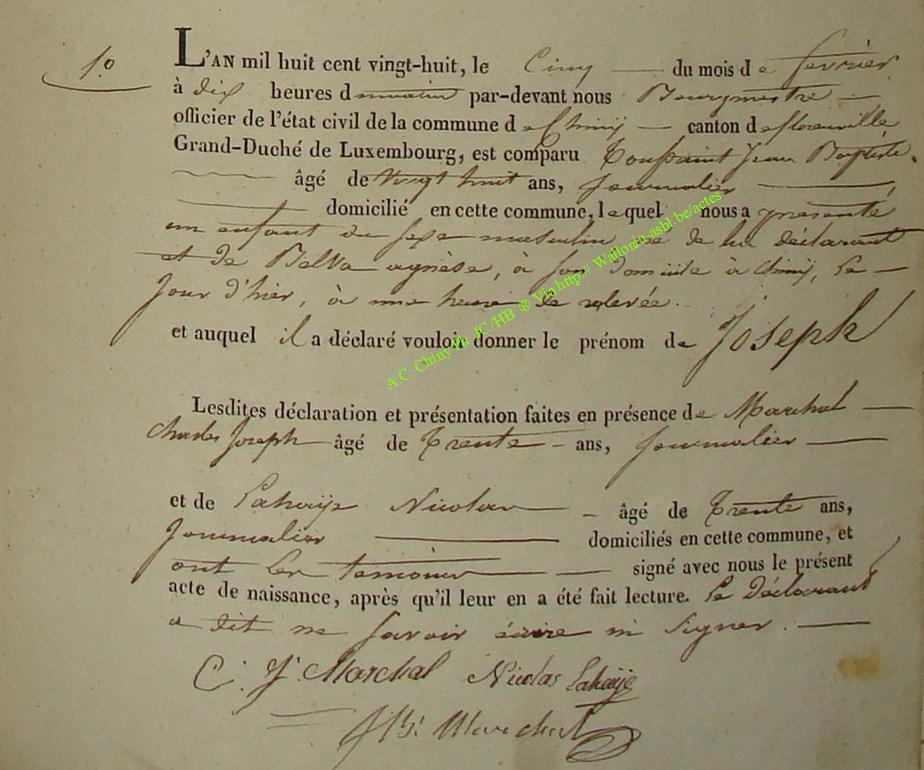 1º
L'AN mil huit cent vingt-huit, le Cinq du mois de février
à dix heures du matin par-devant nous Bourgmestre
officier de l'état civil de la commune de Chiny canton de florenville
Grand-Duché de Luxembourg, est comparu Toussaint Jean Baptiste.
âgé de vingt huit ans, journalier
domicilié en cette commune, lequel nous a présenté
un enfant du sexe masculin né de lui déclarant
et de Belva agnèse, à son domicile à Chiny, le
jour d'hier, à une heure de relevée.
et auquel il a déclaré vouloir donner le prénom de Joseph
Lesdites déclaration et présentation faites en présence de Marchal
Charles Joseph âgé de trente ans, journalier
et de Lahaÿe Nicolas âgé de trente ans,
journalier domiciliés en cette commune, et
ont les témoins signé avec nous le présent
acte de naissance, après qu'il leur en a été fait lecture. Le Déclarant
a dit ne savoir écrire ni signer.
C. J. Marchal Nicolas Lahaÿe
JBt Marchal
A.C. Chiny Ph. JC/HB ® Via http:// Wallonia-asbl.be/actes